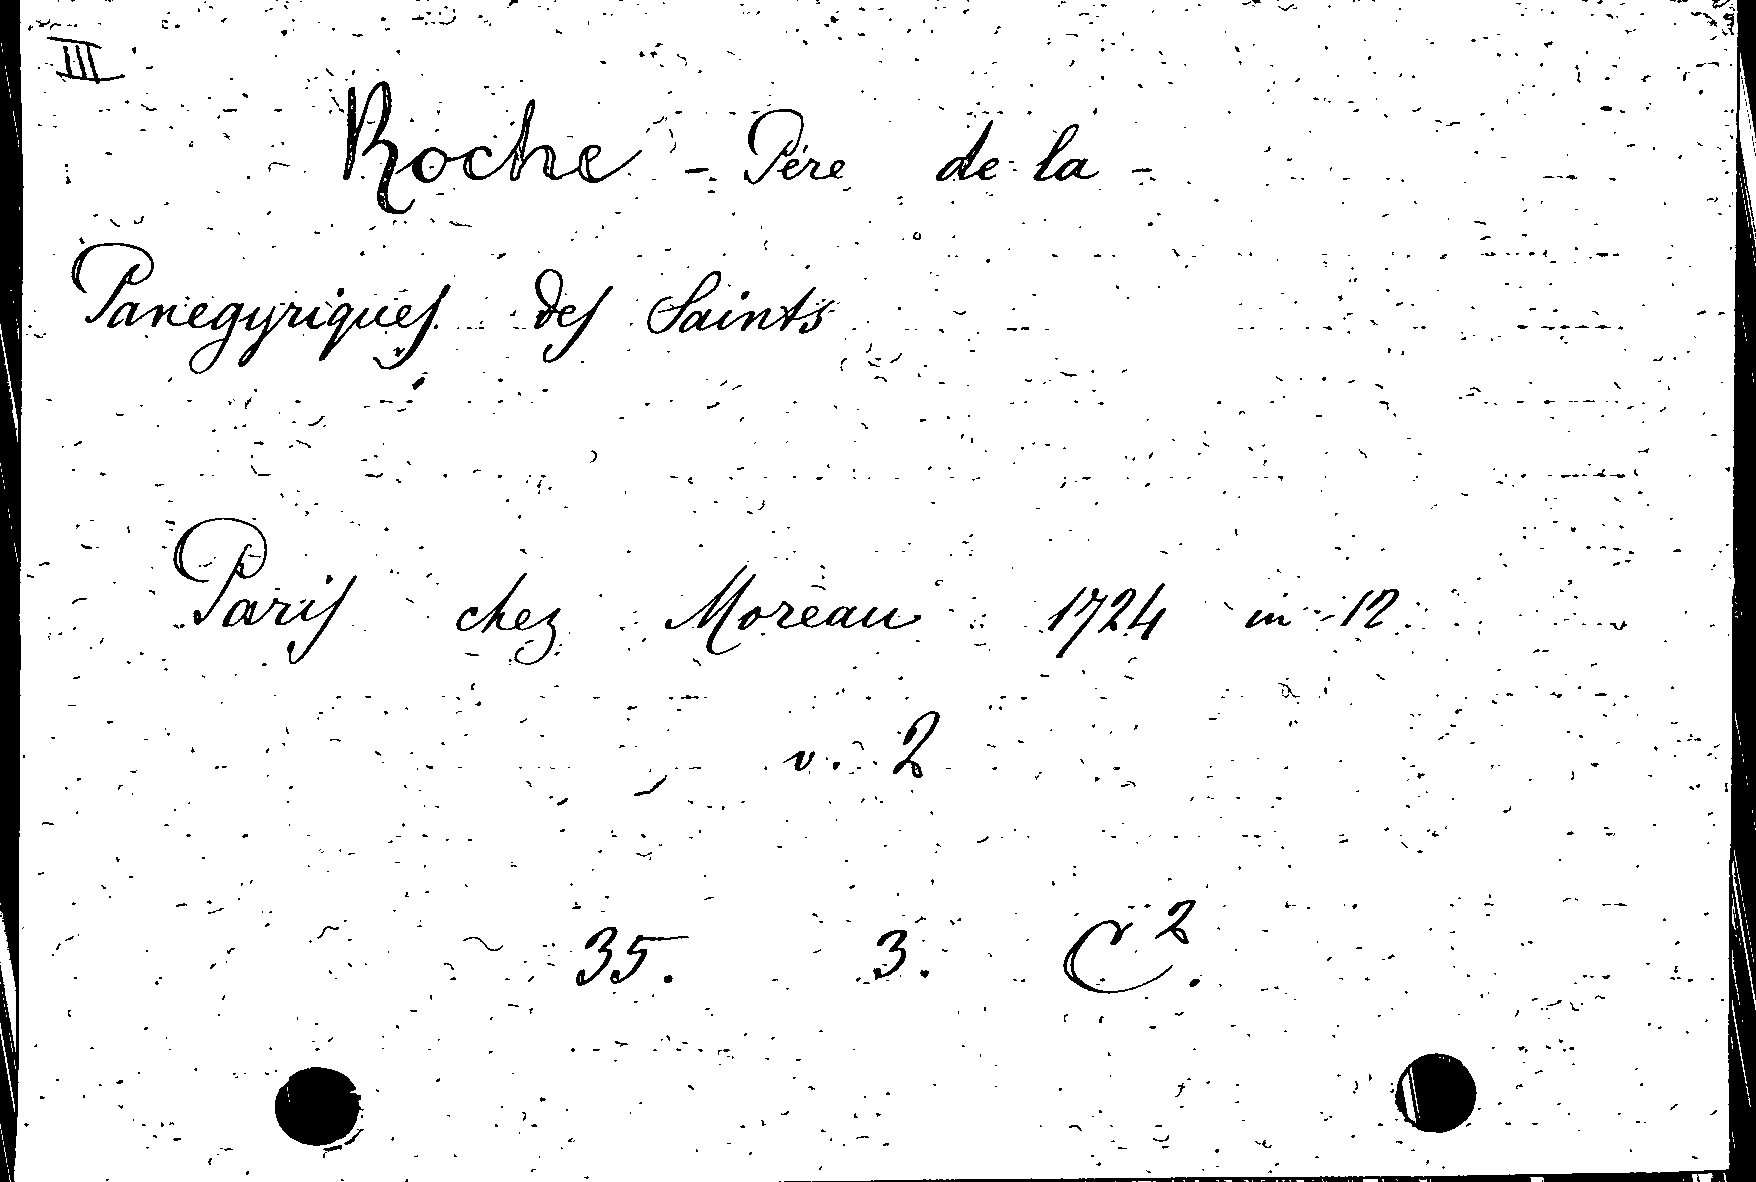 III
Roche - Pére de la -
Panegyriques des Saints
Paris chez Moreau 1724 in-12
v. 2
35. 3. C².